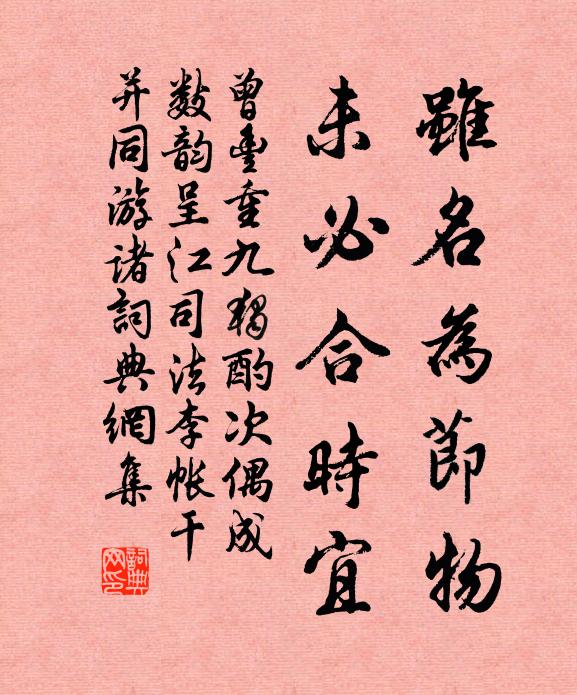 雖名為節物
未必合時宜
曾豊重九獨酌次偶成
数韵呈江司法李帐干
并同游诸詞典網集
詞典网印